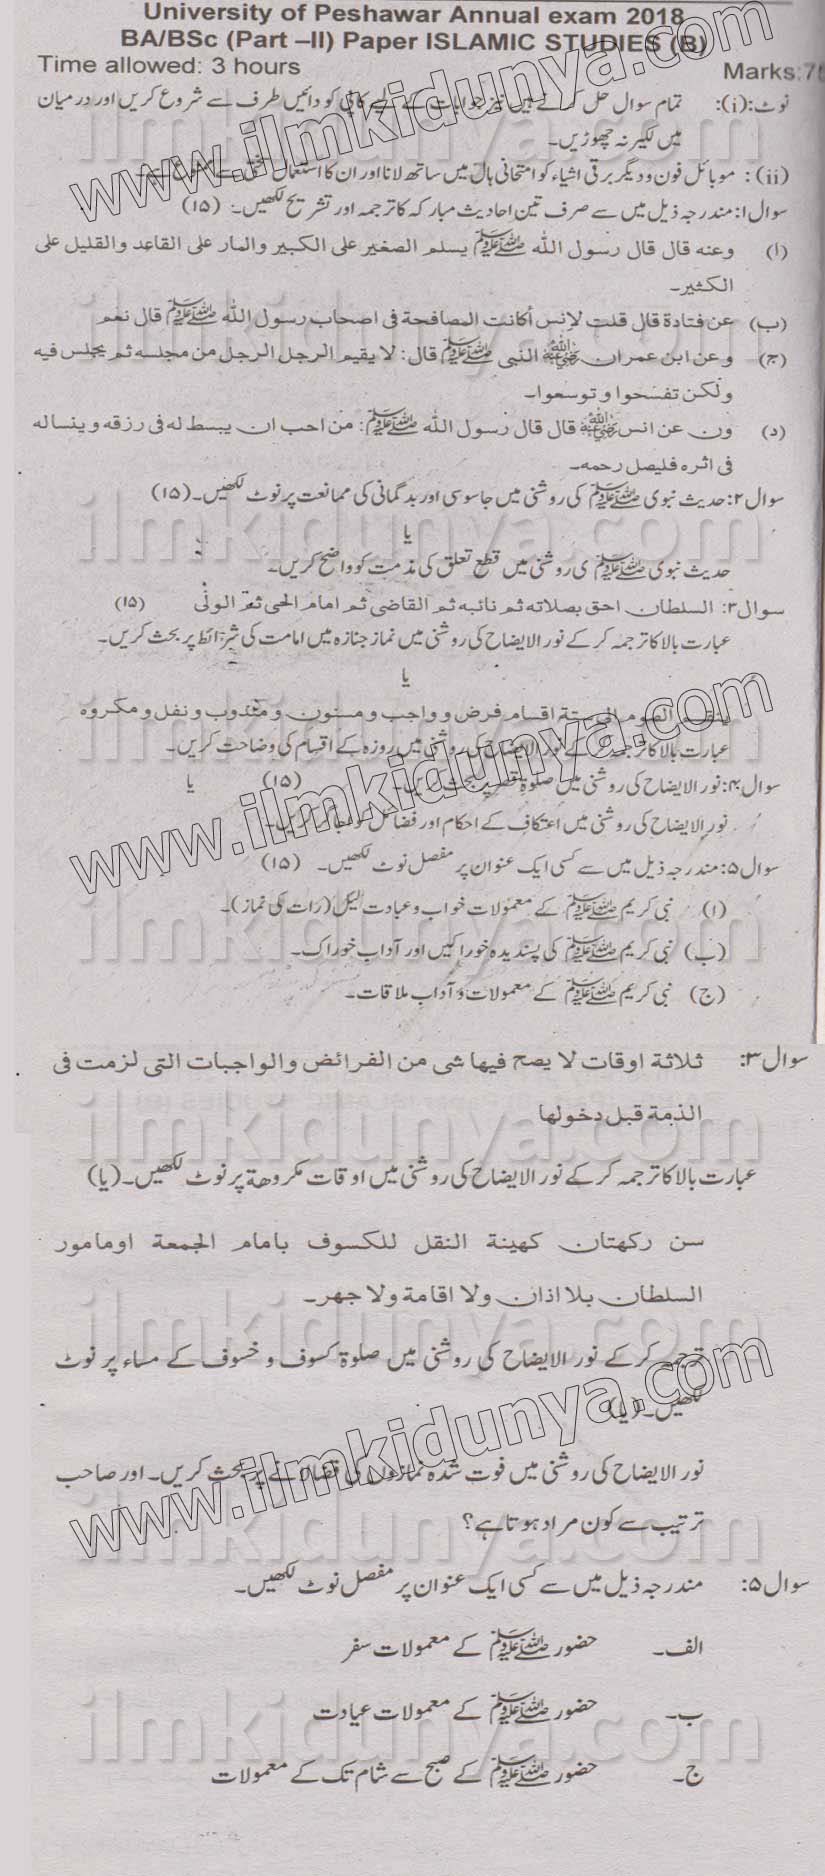 University of Peshawar Annual exam 2018
BA/BSc (Part –II) Paper ISLAMIC STUDIES (B)
Time allowed: 3 hours Marks:75
نوٹ:(i): تمام سوال حل کرنے ہیں نیز جوابات کے لیے کاپی کو دائیں طرف سے شروع کریں اور درمیان
میں لکیر نہ چھوڑیں۔
(ii): موبائل فون و دیگر برقی اشیاء کو امتحانی ہال میں ساتھ لانا اور ان کا استعمال سختی سے ممنوع ہے۔
سوال ۱: مندرجہ ذیل میں سے صرف تین احادیث مبارکہ کا ترجمہ اور تشریح لکھیں۔ (۱۵)
(ا) وعنه قال قال رسول الله ﷺ يسلم الصغير على الكبير والمار على القاعد والقليل على
الكثير۔
(ب) عن فتادة قال قلت لإنس أكانت المصافحة فى اصحاب رسول الله ﷺ قال نعم
(ج) وعن ابن عمران رضی اللہ عنہ النبی ﷺ قال: لا يقيم الرجل الرجل من مجلسه ثم يجلس فيه
ولكن تفسحوا و توسعوا۔
(د) ون عن انس رضی اللہ عنہ قال قال رسول الله ﷺ: من احب ان يبسط له فى رزقه و ينساله
فى اثره فليصل رحمه۔
سوال ۲: حدیث نبوی ﷺ کی روشنی میں جاسوسی اور بدگمانی کی ممانعت پر نوٹ لکھیں۔ (۱۵)
یا
حدیث نبوی ﷺ ی روشنی میں قطع تعلق کی مذمت کو واضح کریں۔
سوال ۳: السلطان احق بصلاته ثم نائبه ثم القاضى ثم امام الحى ثم الولى (۱۵)
عبارت بالا کا ترجمہ کر کے نور الایضاح کی روشنی میں نماز جنازہ میں امامت کی شرائط پر بحث کریں۔
یا
ينقسم الصوم الى ستة اقسام فرض و واجب و مسنون و مندوب و نفل و مكروه
عبارت بالا کا ترجمہ کر کے نور الایضاح کی روشنی میں روزہ کے اقسام کی وضاحت کریں۔
سوال ۴: نور الایضاح کی روشنی میں صلوٰۃ قصر پر بحث کریں۔ (۱۵) یا
نور الایضاح کی روشنی میں اعتکاف کے احکام اور فضائل کو اجاگر کریں۔
سوال ۵: مندرجہ ذیل میں سے کسی ایک عنوان پر مفصل نوٹ لکھیں۔ (۱۵)
(ا) نبی کریم ﷺ کے معمولات خواب و عبادت لیل (رات کی نماز)۔
(ب) نبی کریم ﷺ کی پسندیدہ خوراکیں اور آداب خوراک۔
(ج) نبی کریم ﷺ کے معمولات و آداب ملاقات۔
سوال ۳: ثلاثة اوقات لا يصح فيها شى من الفرائض والواجبات التى لزمت فى
الذمة قبل دخولها
عبارت بالا کا ترجمہ کر کے نور الایضاح کی روشنی میں اوقات مکروھة پر نوٹ لکھیں۔ (یا)
سن ركهتان كهينة النقل للكسوف بامام الجمعة اومامور
السلطان بلا اذان ولا اقامة ولا جهر۔
ترجمہ کر کے نور الایضاح کی روشنی میں صلوۃ کسوف و خسوف کے مساء پر نوٹ
لکھیں۔ (یا)
نور الایضاح کی روشنی میں فوت شدہ نمازوں کی قضا لانے پر بحث کریں۔ اور صاحب
ترتیب سے کون مراد ہوتا ہے؟
سوال ۵: مندرجہ ذیل میں سے کسی ایک عنوان پر مفصل نوٹ لکھیں۔
الف۔ حضور ﷺ کے معمولات سفر
ب۔ حضور ﷺ کے معمولات عیادت
ج۔ حضور ﷺ کے صبح سے شام تک کے معمولات
www.ilmkidunya.com
www.ilmkidunya.com
www.ilmkidunya.com